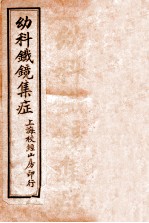 幼科鐵鏡集症
上海校經山房印行